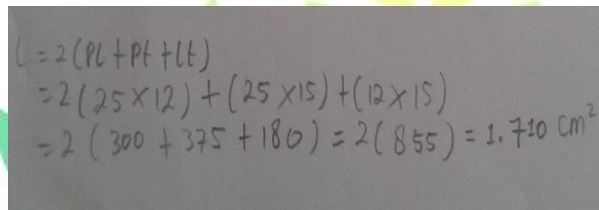 L = 2(Pl + Pt + lt)
= 2(25 × 12) + (25 × 15) + (12 × 15)
= 2 (300 + 375 + 180) = 2(855) = 1.710 cm²